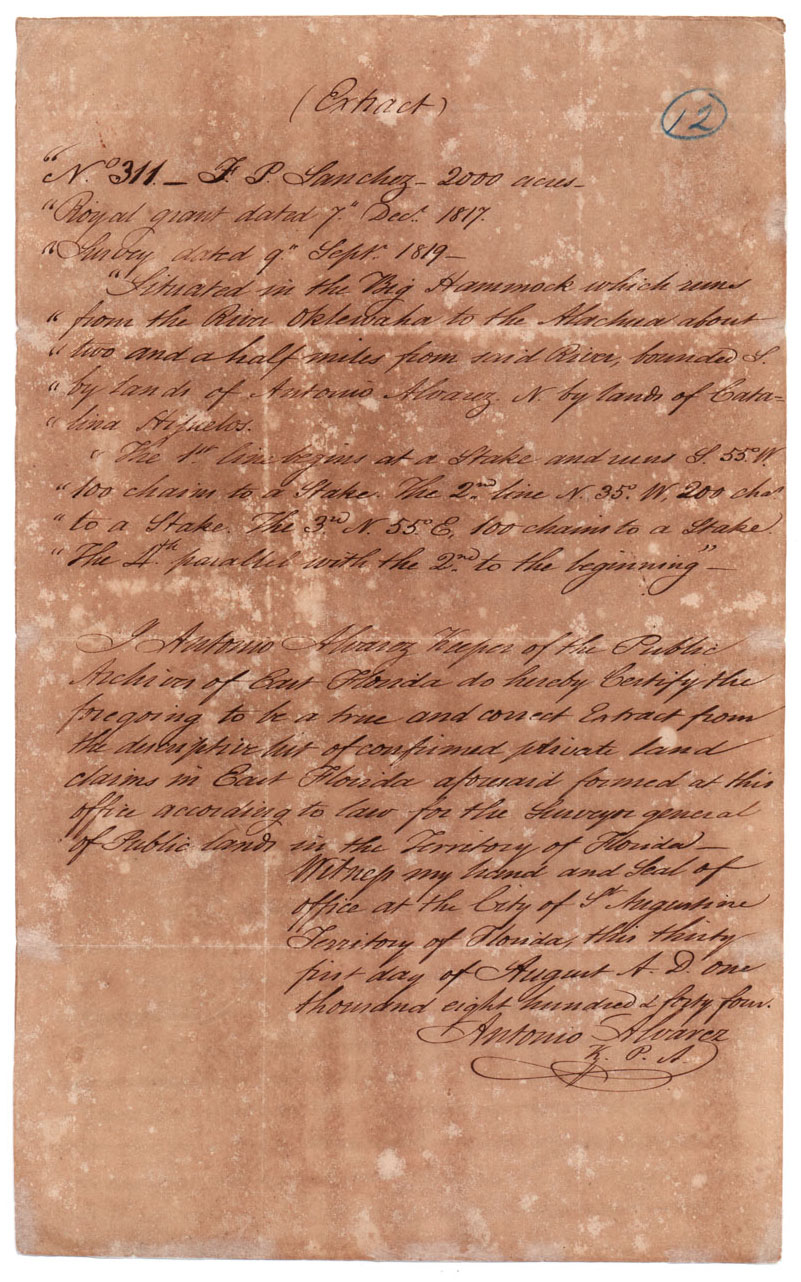 (Extract)
12
"No. 311 – F. P. Sanchez – 2000 acres –
"Royal grant dated 7" Decr. 1817.
"Survey dated 9" Septr. 1819 –
"Situated in the Big Hammock which runs
"from the River Oklewaha to the Alachua about
"two and a half miles from said River, bounded S.
"by lands of Antonio Alvarez. N. by lands of Cata=
"lina Hijuelos.
"The 1st line begins at a Stake and runs S. 55° W.
"100 chains to a Stake. The 2nd line N. 35° W, 200 chs.
"to a Stake. The 3rd N. 55° E, 100 chains to a Stake.
"The 4th parallel with the 2nd to the beginning" –
I Antonio Alvarez Keeper of the Public
Archives of East Florida do hereby Certify the
foregoing to be a true and correct Extract from
the descriptive list of confirmed private land
claims in East Florida aforesaid formed at this
office according to law for the Surveyor general
of Public lands in the Territory of Florida –
Witness my hand and Seal of
office at the City of St. Augustine
Territory of Florida, this thirty
first day of August A. D. one
thousand eight hundred & forty four.
Antonio Alvarez
K. P. A.